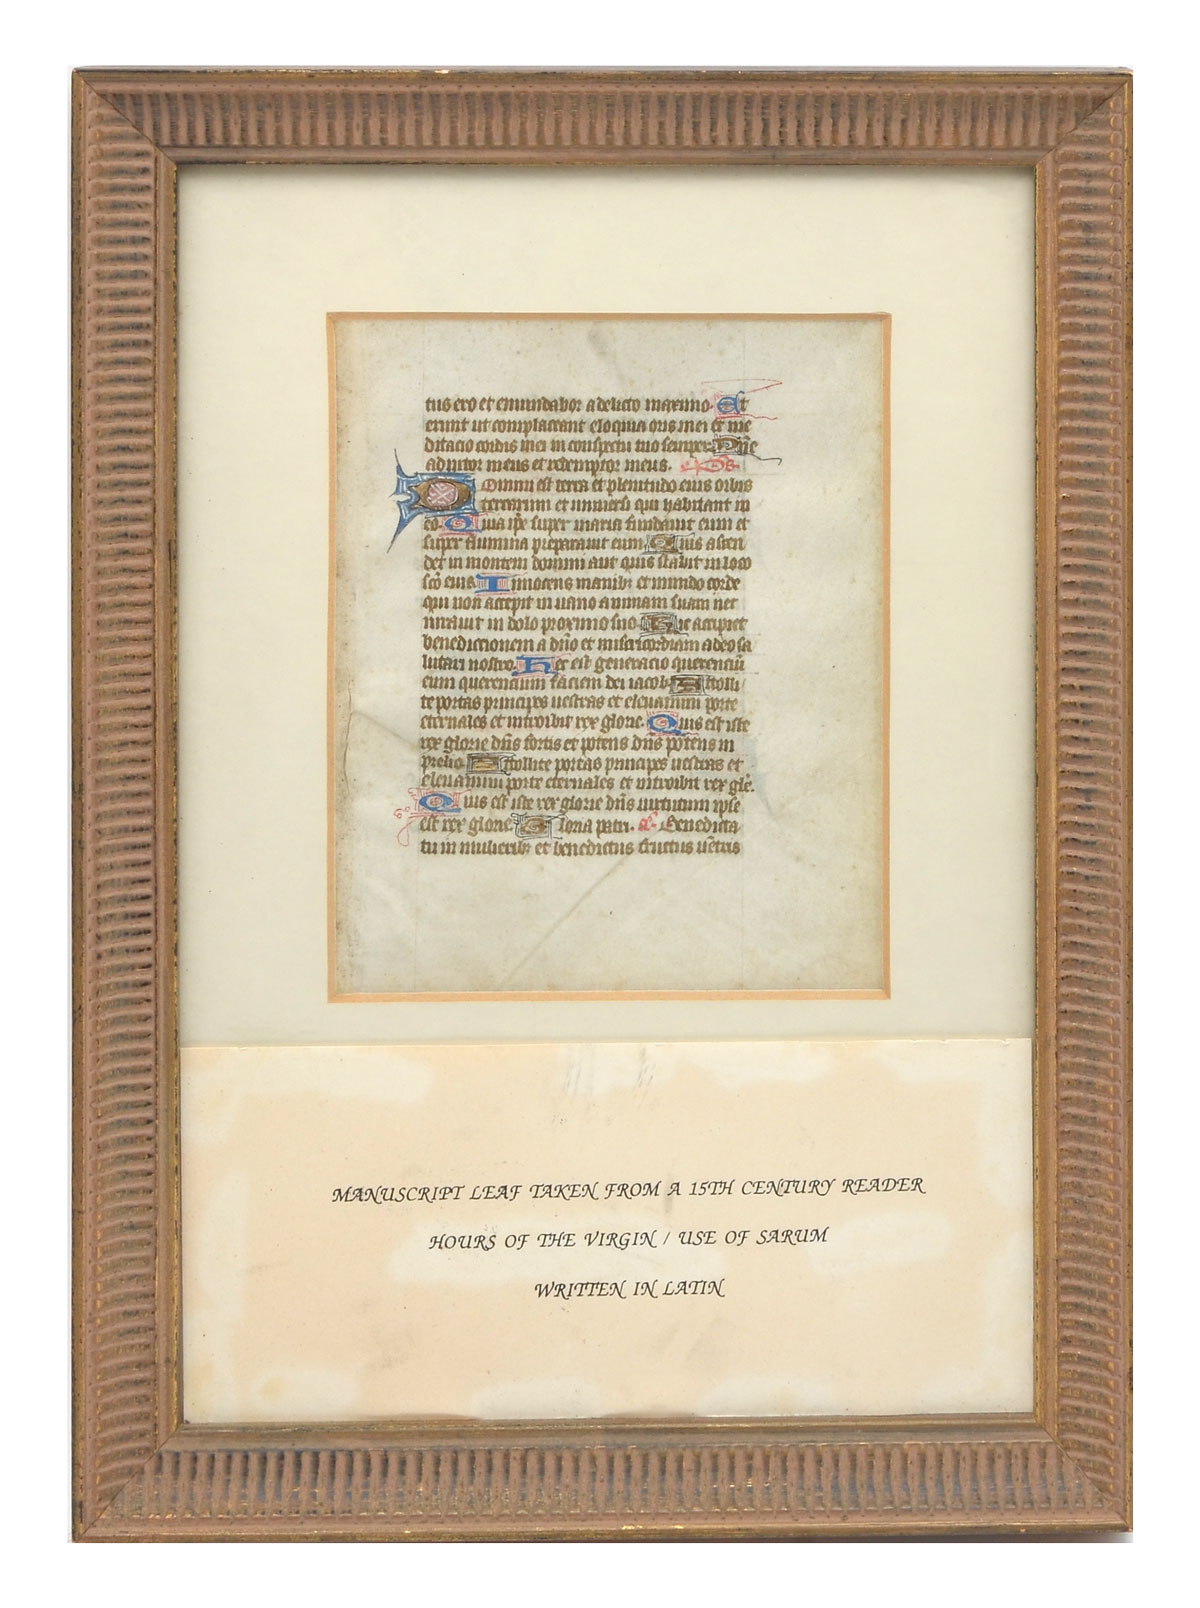 tus ero et emundabor a delicto maximo. Et
erunt ut complaceant eloquia oris mei et me
ditacio cordis mei in conspectu tuo semper Dn̄e
adiutor meus et redemptor meus. ps.
Domini est terra et plenitudo eius orbis
terrarum et uniuersi qui habitant in
eo. Quia ip̄e super maria fundauit eum et
super flumina preparauit eum. Quis ascen
det in montem domini aut quis stabit in loco
sc̄o eius. Innocens manibꝫ et mundo corde
qui non accepit in uano animam suam nec
iurauit in dolo proximo suo. Hic accipiet
benedictionem a dn̄o et misericordiam a deo sa
lutari nostro. Hec est generacio querenciū
eum querencium faciem dei iacob. Attolli
te portas principes uestras et eleuamini porte
eternales et introibit rex glorie. Quis est iste
rex glorie dn̄s fortis et potens dn̄s potens in
prelio. Attollite portas principes uestras et
eleuamini porte eternales et introibit rex gle̅.
Quis est iste rex glorie dn̄s uirtutum ipse
est rex glorie. Gloria patri. a. Benedicta
tu in mulieribꝫ et benedictus fructus ue̅tris
MANUSCRIPT LEAF TAKEN FROM A 15TH CENTURY READER
HOURS OF THE VIRGIN / USE OF SARUM
WRITTEN IN LATIN